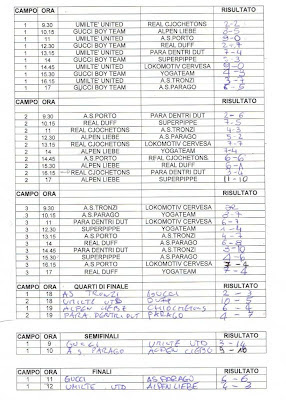 CAMPO ORA RISULTATO
1 9.30 UMILTE' UNITED REAL CJOCHETONS 2-2
1 10.15 GUCCI BOY TEAM ALPEN LIEBE
1 11 UMILTE' UNITED A.S.PORTO 9-0
1 12.30 GUCCI BOY TEAM REAL DUFF 2-7
1 13.15 UMILTE' UNITED PARA DENTRI DUT 7-4
1 14 GUCCI BOY TEAM SUPERPIPPE
1 14.45 UMILTE' UNITED LOKOMOTIV CERVESA 9-0
1 15.30 GUCCI BOY TEAM YOGATEAM
1 16.15 UMILTE' UNITED A.S.TRONZI
1 17 GUCCI BOY TEAM A.S.PARAGO
CAMPO ORA RISULTATO
2 9.30 A.S.PORTO PARA DENTRI DUT 2-6
2 10.15 REAL DUFF SUPERPIPPE
2 11 REAL CJOCHETONS A.S.TRONZI 4-3
2 12.30 ALPEN LIEBE A.S.PARAGO
2 13.15 REAL CJOCHETONS LOKOMOTIV CERVESA
2 14 ALPEN LIEBE YOGATEAM
2 14.45 A.S.PORTO REAL CJOCHETONS 6-6
2 15.30 ALPEN LIEBE REAL DUFF
2 16.15 REAL CJOCHETONS PARA DENTRI DUT
2 17 ALPEN LIEBE SUPERPIPPE 11-10
CAMPO ORA RISULTATO
3 9.30 A.S.TRONZI LOKOMOTIV CERVESA
3 10.15 A.S.PARAGO YOGATEAM
3 11 PARA DENTRI DUT LOKOMOTIV CERVESA
3 12.30 SUPERPIPPE YOGATEAM
3 13.15 A.S.PORTO A.S.TRONZI
3 14 REAL DUFF A.S.PARAGO 6-6
3 14.45 PARA DENTRI DUT A.S.TRONZI
3 15.30 SUPERPIPPE A.S.PARAGO
3 16.15 A.S.PORTO LOKOMOTIV CERVESA 7-4
3 17 REAL DUFF YOGATEAM 7-4
CAMPO ORA QUARTI DI FINALE RISULTATO
1 18 AS TRONZI GUCCI
2 18 UMILTE UTD DUFF
1 19 ALPEN LIEBE CJOCHETONS
2 19 PARA DENTRI DUT PARAGO 6-7
CAMPO ORA SEMIFINALI RISULTATO
1 9 GUCCI UMILTE UTD 3-14
1 10 A.S PARAGO ALPEN LIEBE 5-10
CAMPO ORA FINALI RISULTATO
1 11 GUCCI AS PARAGO 6-6
1 12 UMILTE UTD ALPEN LIEBE 4-3